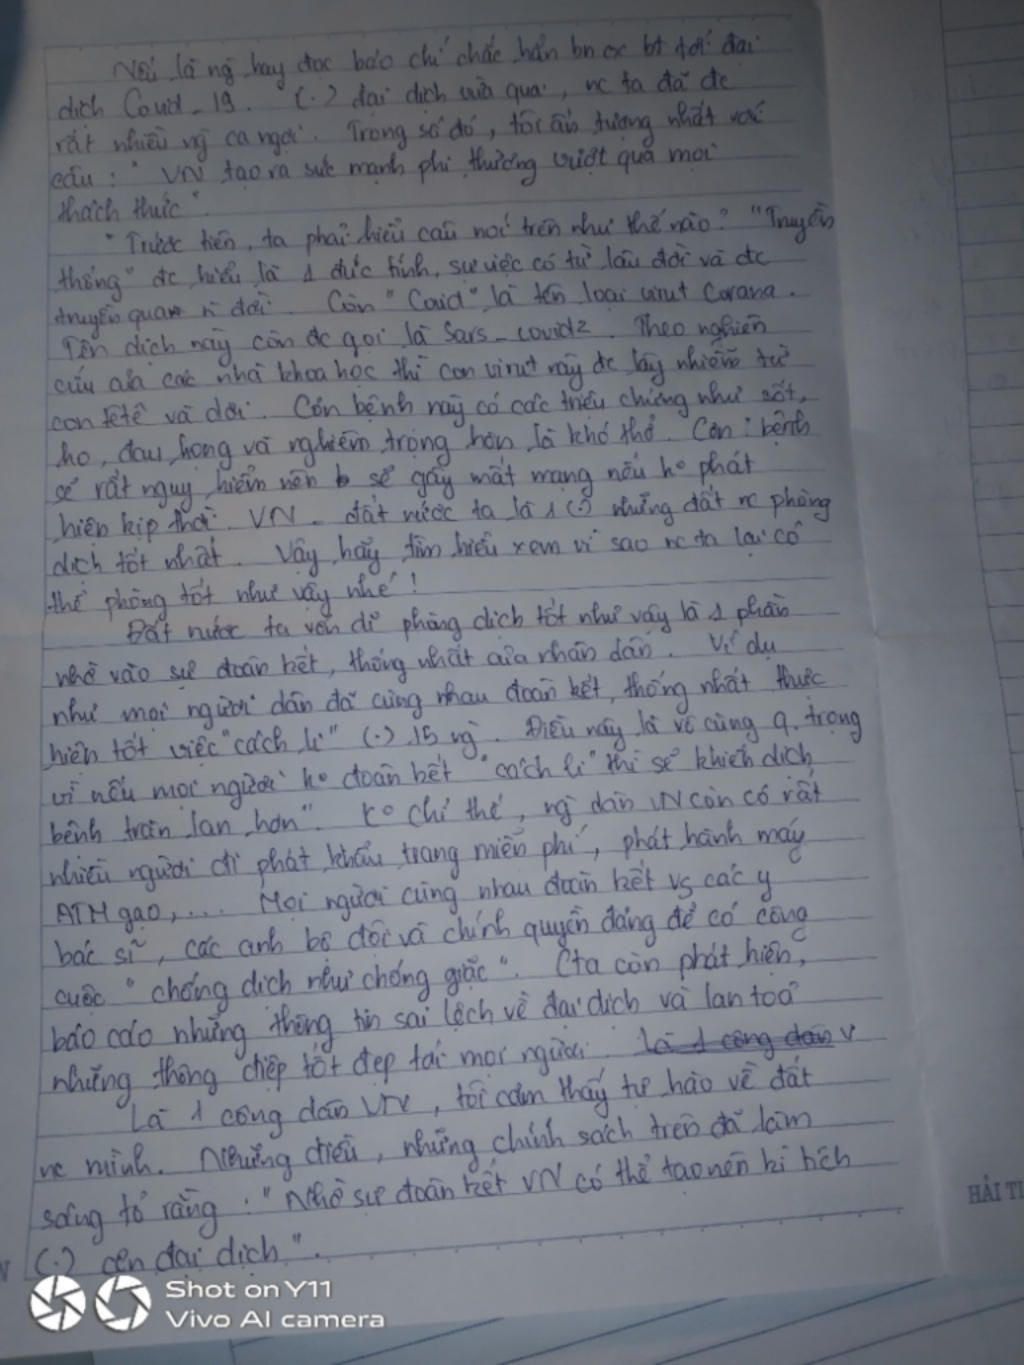 Nếu là ng hay đọc báo chí chắc hẳn bn cx bt tới đại
dịch Covid_19. (.) đại dịch vừa qua, nc ta đã đc
rất nhiều ng ca ngợi. Trong số đó, tôi ấn tượng nhất với
câu: "VN tạo ra sức mạnh phi thường vượt qua mọi
thách thức".
"Trước tiên, ta phải hiểu câu nói trên như thế nào? "Truyền
thống" đc hiểu là 1 đức tính, sự việc có từ lâu đời và đc
truyền qua đời. Còn "Covid" là tên loại virut Corona.
Tên dịch này còn đc gọi là Sars_covid2. Theo nghiên
cứu của các nhà khoa học thì con virut này đc lây nhiễm từ
con têtê và dơi. Còn bệnh này có các triệu chứng như sốt,
ho, đau họng và nghiêm trọng hơn là khó thở. Căn bệnh
sẽ rất nguy hiểm nên sẽ gây mất mạng nếu ko phát
hiện kịp thời. VN_ đất nước ta là 1 (.) những đất nc phòng
dịch tốt nhất. Vậy hãy tìm hiểu xem vì sao nc ta lại có
thể phòng tốt như vậy nhé!
Đất nước ta vốn dĩ phòng dịch tốt như vậy là 1 phần
nhờ vào sự đoàn kết, thống nhất của nhân dân. Ví dụ
như mọi người dân đã cùng nhau đoàn kết, thống nhất thực
hiện tốt việc "cách li" (.) 15 ng. Điều này là vô cùng q. trọng
vì nếu mọi người ko đoàn kết "cách li" thì sẽ khiến dịch
bệnh tràn lan hơn". Ko chỉ thế, ng dân VN còn có rất
nhiều người đi phát khẩu trang miễn phí, phát hành máy
ATM gạo,... Mọi người cùng nhau đoàn kết vs các y
bác sĩ, các anh bộ đội và chính quyền đảng để có công
cuộc "chống dịch như chống giặc". Cta còn phát hiện,
báo cáo những thông tin sai lệch về đại dịch và lan toả
những thông điệp tốt đẹp tới mọi người. là 1 công dân V
Là 1 công dân VN, tôi cảm thấy tự hào về đất
nc mình. Những điều, những chính sách trên đã làm
sáng tỏ rằng: "Nhờ sự đoàn kết VN có thể tạo nên kì tích
(.) cơn đại dịch".
HẢI TI
Shot on Y11
Vivo AI camera